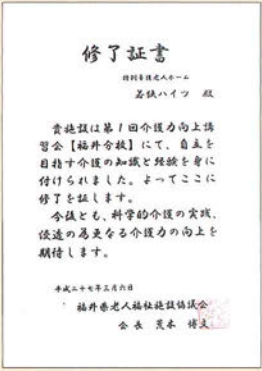 修了証書
特別養護老人ホーム
若狭ハイツ 殿
貴施設は第1回介護力向上講
習会【福井分校】にて、自立を
目指す介護の知識と経験を身に
付けられました。よってここに
修了を証します。
今後とも、科学的介護の実践、
伝達の為更なる介護力の向上を
期待します。
平成二十七年三月六日
福井県老人福祉施設協議会
会長 荒木 博文